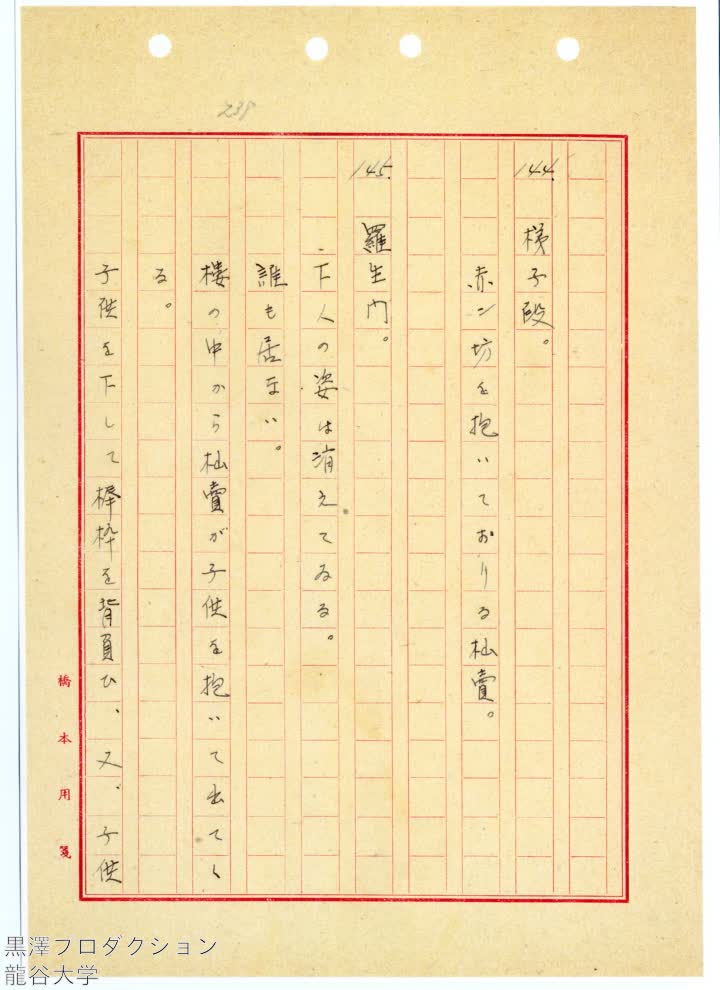 239
144.
梯子段。
赤ン坊を抱いておりる杣賣。
145.
羅生門。
下人の姿は消えてゐる。
誰も居ない。
樓の中から杣賣が子供を抱いて出てく
る。
子供を下して背負ひ、又、子供
橋本用箋
黒澤プロダクション
龍谷大学